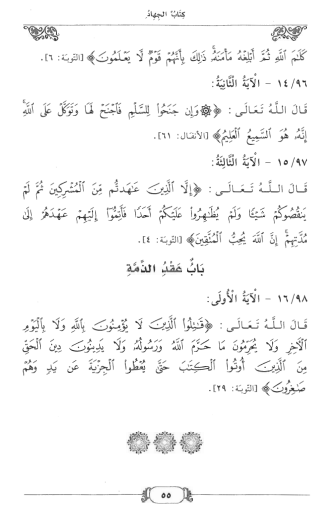 كتاب الجهاد
كَلَٰمَ ٱللَّهِ ثُمَّ أَبۡلِغۡهُ مَأۡمَنَهُۥۚ ذَٰلِكَ بِأَنَّهُمۡ قَوۡمٞ لَّا يَعۡلَمُونَ﴾ [التوبة: ٦].
١٤/٩٦ - الآيَةُ الثَّانِيَةُ:
قَالَ اللَّهُ تَعَالَى: ﴿۞وَإِن جَنَحُواْ لِلسَّلۡمِ فَٱجۡنَحۡ لَهَا وَتَوَكَّلۡ عَلَى ٱللَّهِۚ
إِنَّهُۥ هُوَ ٱلسَّمِيعُ ٱلۡعَلِيمُ﴾ [الأنفال: ٦١].
١٥/٩٧ - الآيَةُ الثَّالِثَةُ:
قَالَ اللَّهُ تَعَالَى: ﴿إِلَّا ٱلَّذِينَ عَٰهَدتُّم مِّنَ ٱلۡمُشۡرِكِينَ ثُمَّ لَمۡ
يَنقُصُوكُمۡ شَيۡـٔٗا وَلَمۡ يُظَٰهِرُواْ عَلَيۡكُمۡ أَحَدٗا فَأَتِمُّوٓاْ إِلَيۡهِمۡ عَهۡدَهُمۡ إِلَىٰ
مُدَّتِهِمۡۚ إِنَّ ٱللَّهَ يُحِبُّ ٱلۡمُتَّقِينَ﴾ [التوبة: ٤].
بَابُ عَقْدِ الذِّمَّةِ
١٦/٩٨ - الآيَةُ الأُولَى:
قَالَ اللَّهُ تَعَالَى: ﴿قَٰتِلُواْ ٱلَّذِينَ لَا يُؤۡمِنُونَ بِٱللَّهِ وَلَا بِٱلۡيَوۡمِ
ٱلۡأٓخِرِ وَلَا يُحَرِّمُونَ مَا حَرَّمَ ٱللَّهُ وَرَسُولُهُۥ وَلَا يَدِينُونَ دِينَ ٱلۡحَقِّ
مِنَ ٱلَّذِينَ أُوتُواْ ٱلۡكِتَٰبَ حَتَّىٰ يُعۡطُواْ ٱلۡجِزۡيَةَ عَن يَدٖ وَهُمۡ
صَٰغِرُونَ﴾ [التوبة: ٢٩].
٥٥